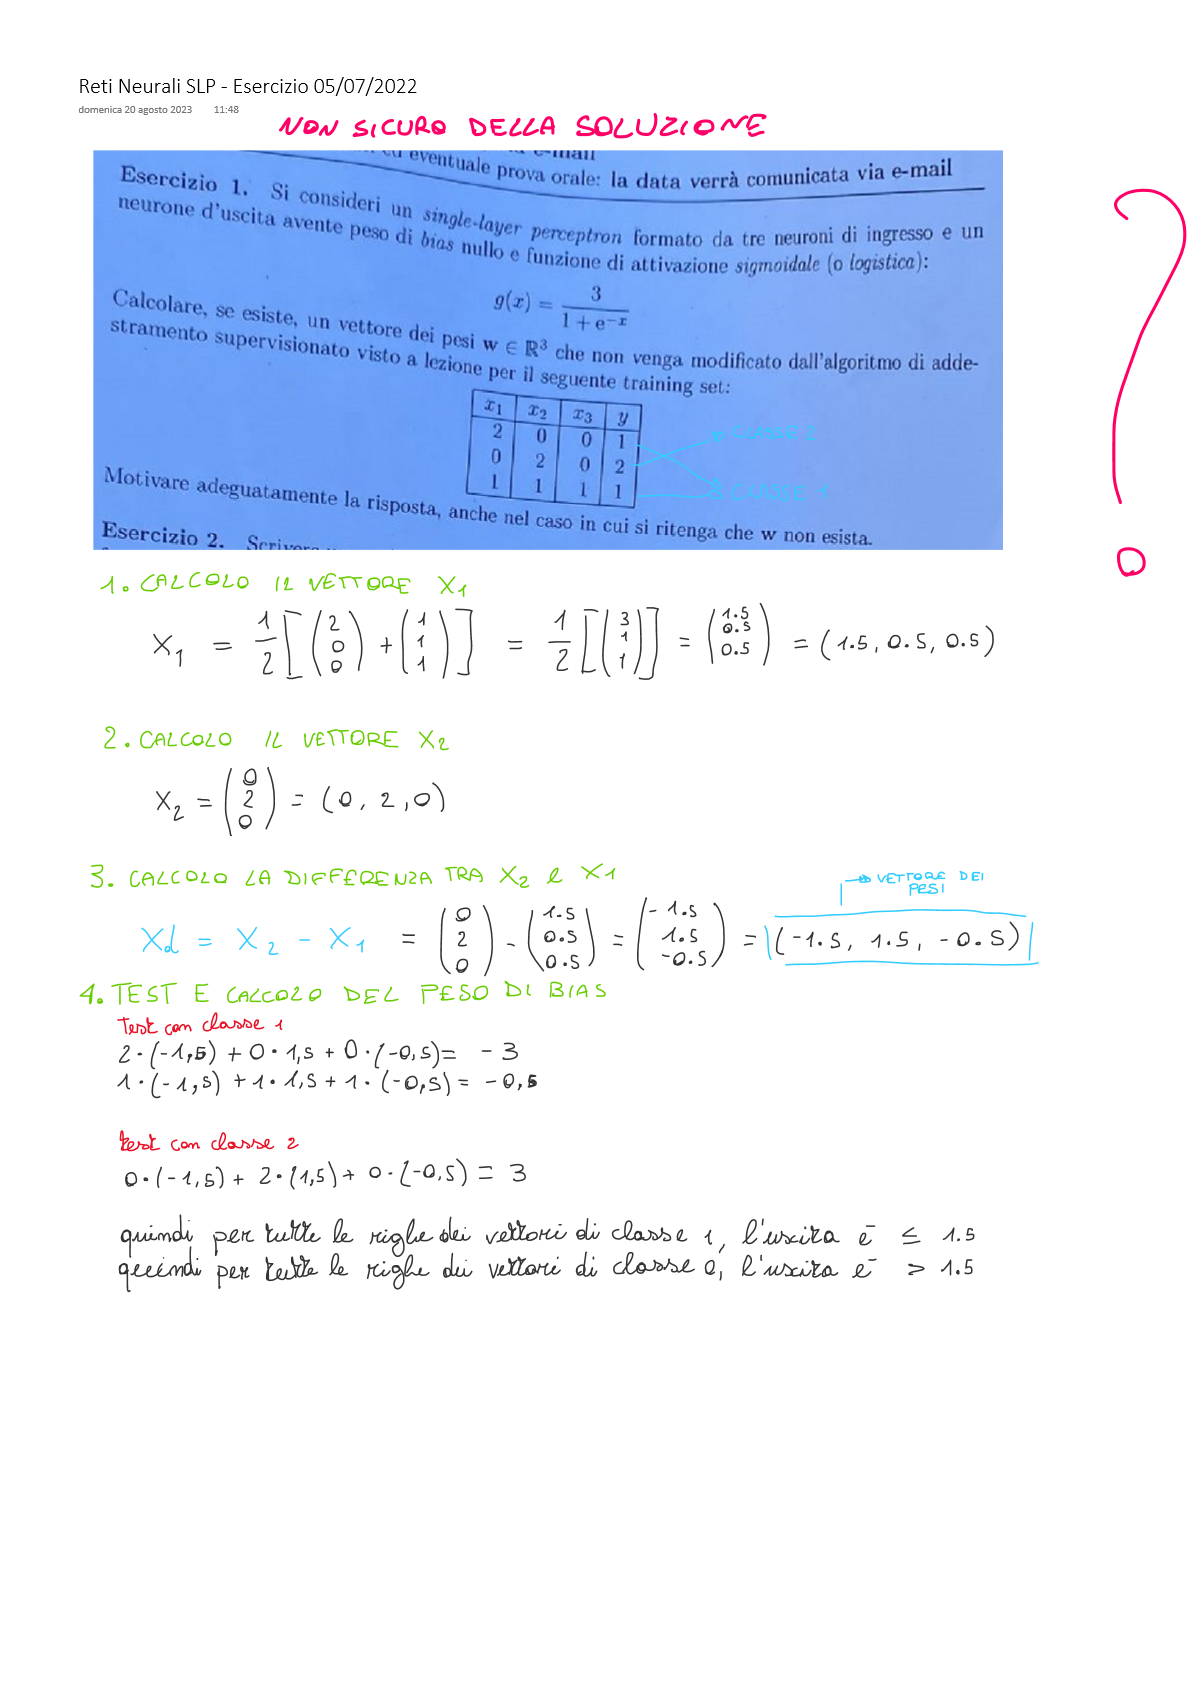 Reti Neurali SLP - Esercizio 05/07/2022
domenica 20 agosto 2023 11:48
NON SICURO DELLA SOLUZIONE
ed eventuale prova orale: la data verrà comunicata via e-mail
Esercizio 1. Si consideri un single-layer perceptron formato da tre neuroni di ingresso e un
neurone d'uscita avente peso di bias nullo e funzione di attivazione sigmoidale (o logistica):
g(x) = 3 / (1 + e^-x)
Calcolare, se esiste, un vettore dei pesi w ∈ ℝ³ che non venga modificato dall'algoritmo di adde-
stramento supervisionato visto a lezione per il seguente training set:
x₁ x₂ x₃ y
2 0 0 1
0 2 0 2
1 1 1 1
CLASSE 2
CLASSE 1
Motivare adeguatamente la risposta, anche nel caso in cui si ritenga che w non esista.
Esercizio 2.
?
1. CALCOLO IL VETTORE X1
X₁ = 1/2 [(2 0 0) + (1 1 1)] = 1/2 [(3 1 1)] = (1.5 0.5 0.5) = (1.5, 0.5, 0.5)
2. CALCOLO IL VETTORE X2
X₂ = (0 2 0) = (0, 2, 0)
3. CALCOLO LA DIFFERENZA TRA X2 e X1
VETTORE DEI
PESI
Xd = X2 - X1 = (0 2 0) - (1.5 0.5 0.5) = (-1.5 1.5 -0.5) = (-1.5, 1.5, -0.5)
4. TEST E CALCOLO DEL PESO DI BIAS
Test con classe 1
2·(-1,5) + 0·1,5 + 0·(-0,5) = -3
1·(-1,5) + 1·1,5 + 1·(-0,5) = -0,5
test con classe 2
0·(-1,5) + 2·(1,5) + 0·(-0,5) = 3
quindi per tutte le righe dei vettori di classe 1, l'uscita è ≤ 1.5
quindi per tutte le righe dei vettori di classe 0, l'uscita è > 1.5